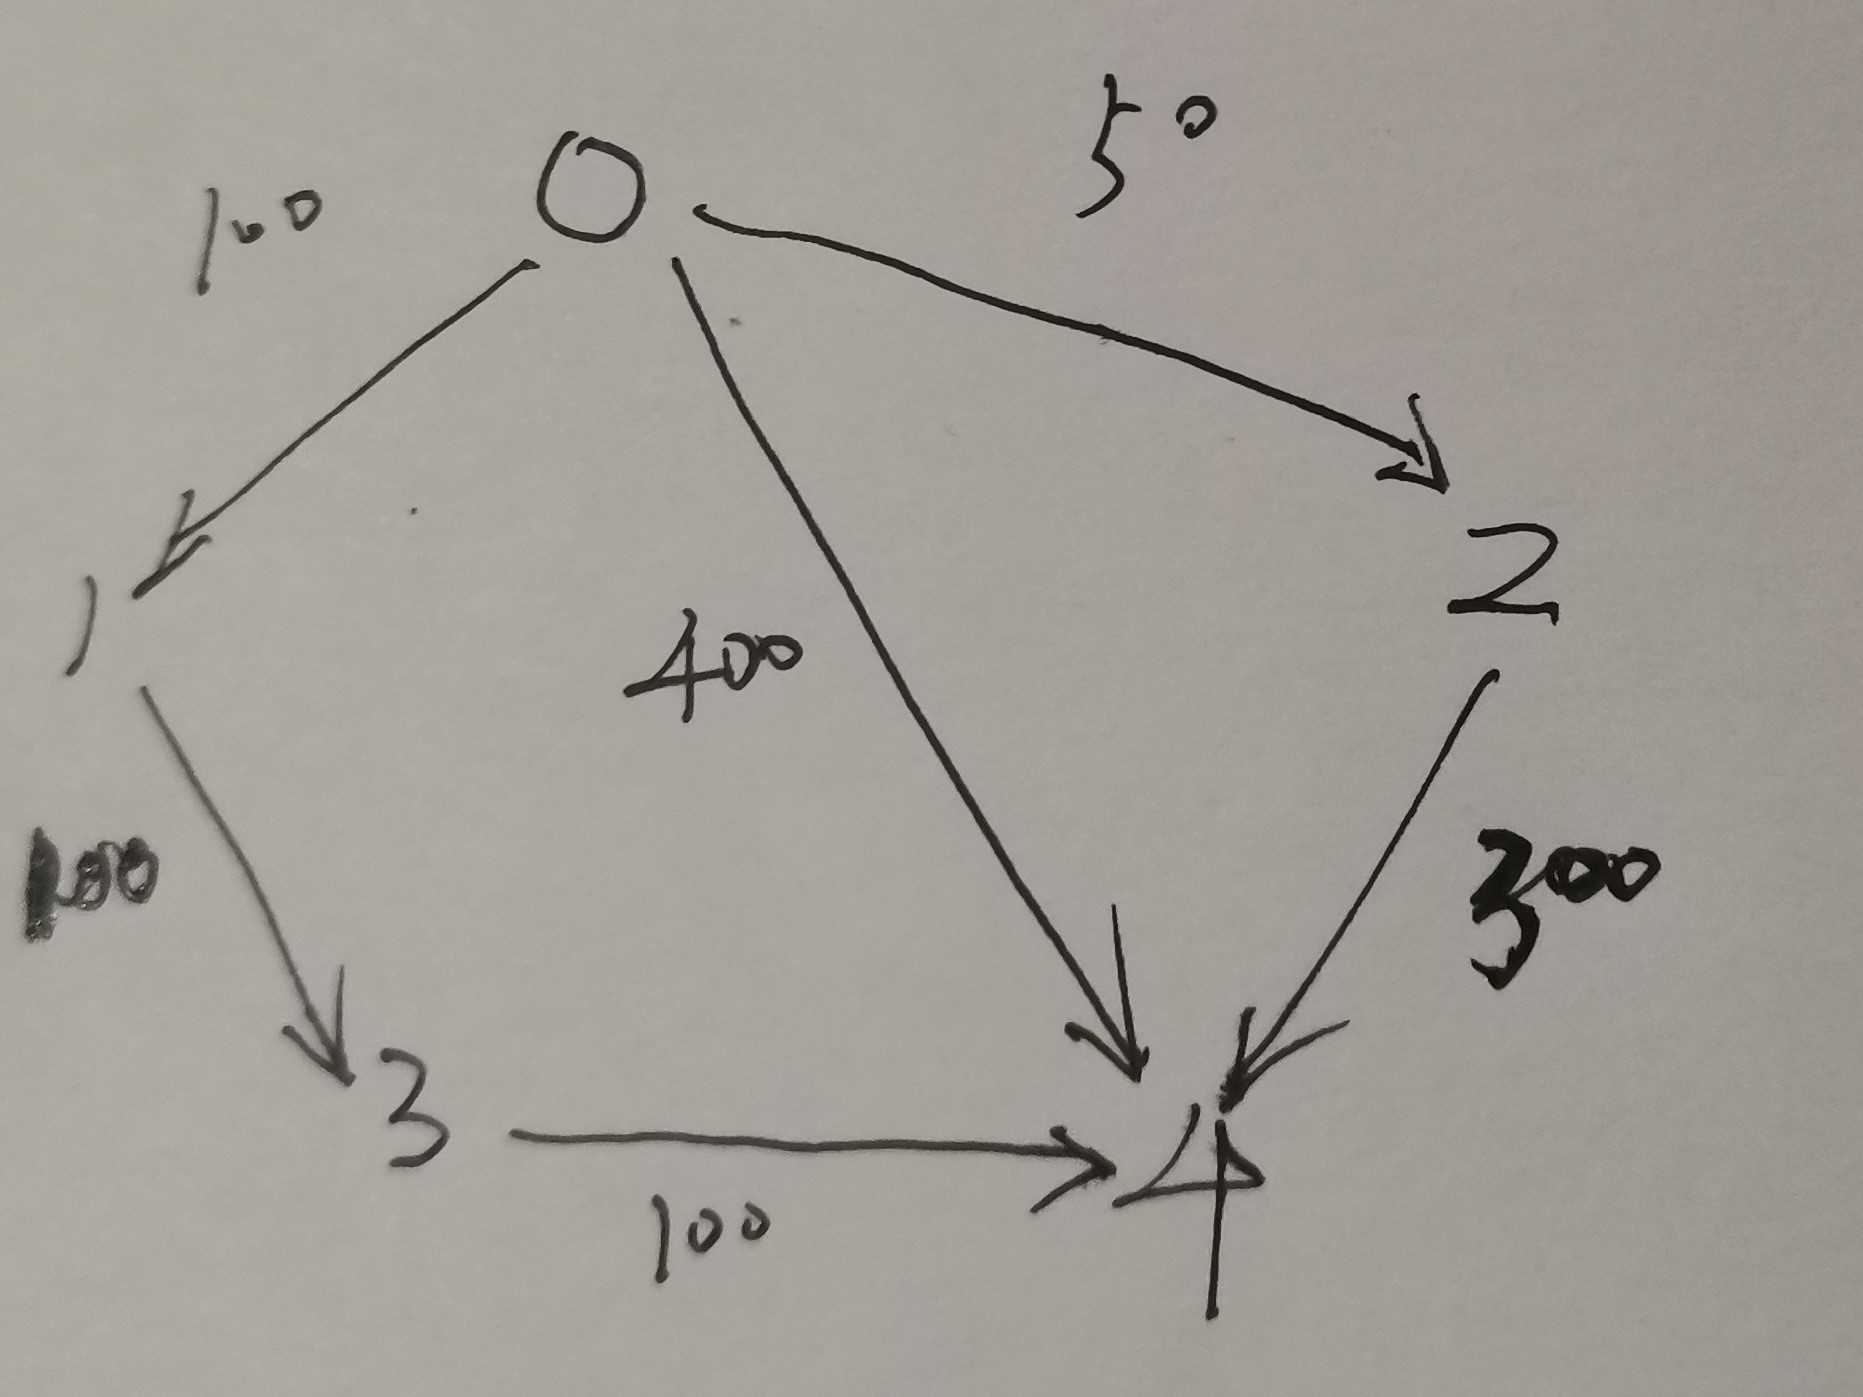 50
0
100
2
1
400
100
300
3
4
100